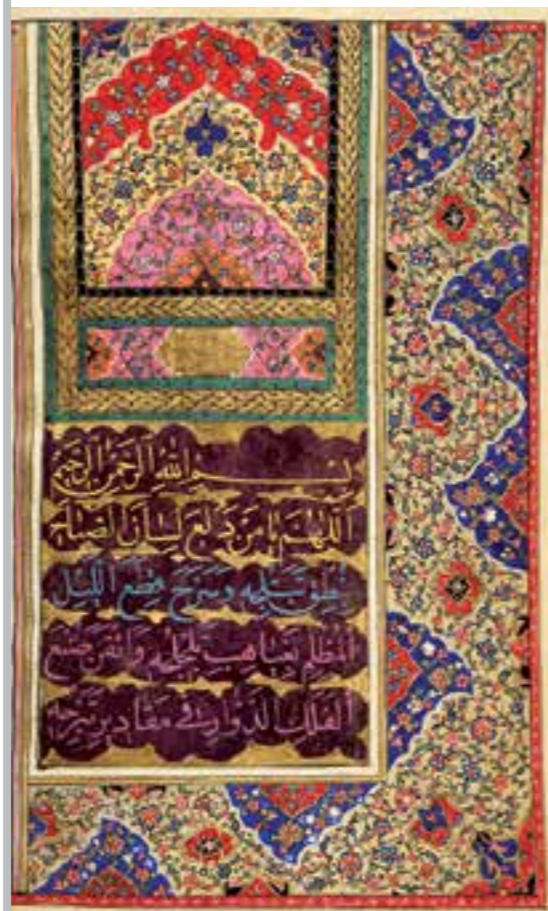 بسم الله الرحمن الرحیم
اللهم یا من دلع لسان الصباح
بنطق تبلجه وسرح قطع اللیل
المظلم بغیاهب تلجلجه واتقن صنع
الفلک الدوار فی مقادیر تبرجه